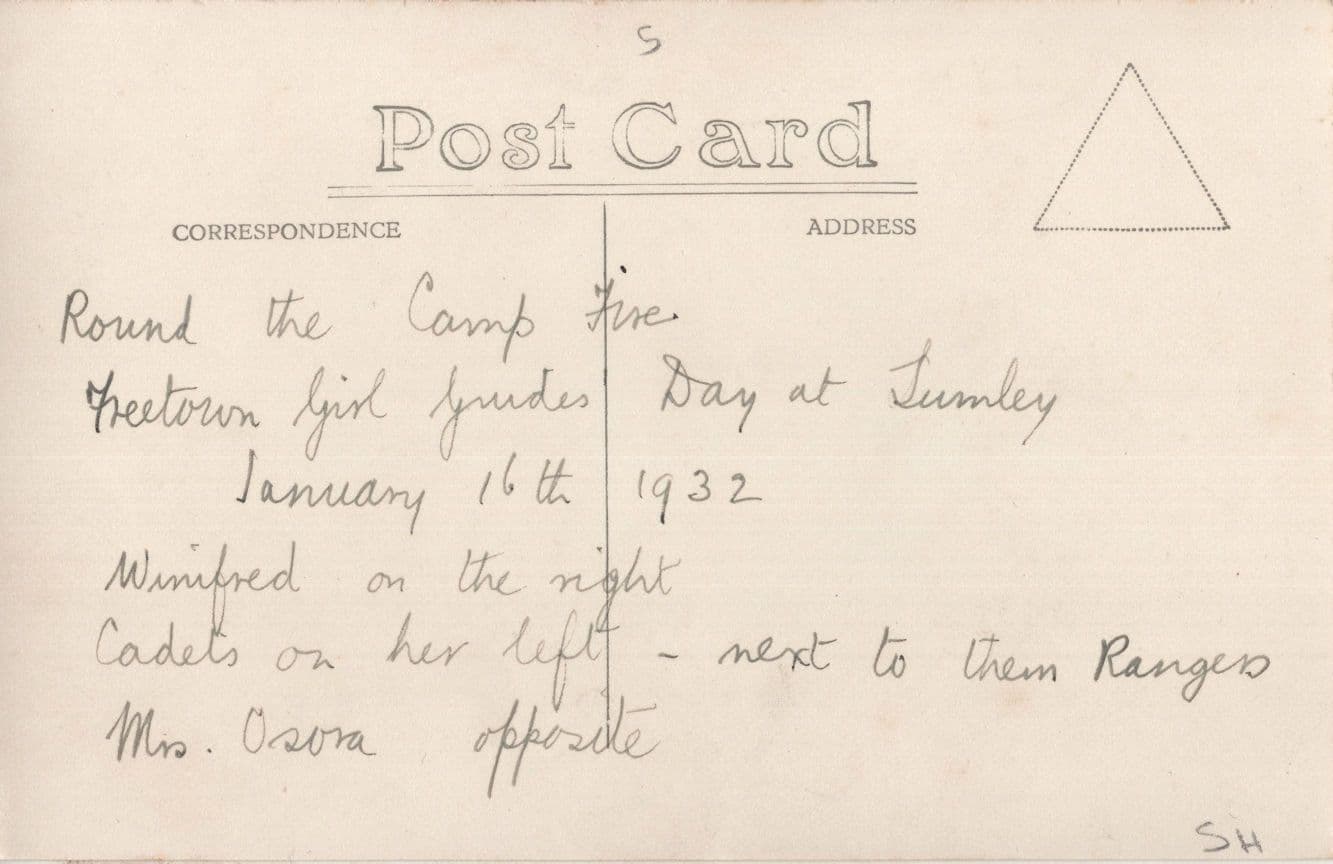 S
Post Card
CORRESPONDENCE ADDRESS
Round the Camp Fire.
Freetown Girl Guides Day at Lumley
January 16th 1932
Winifred on the right
Cadets on her left - next to them Rangers
Mrs. Osora opposite
SH